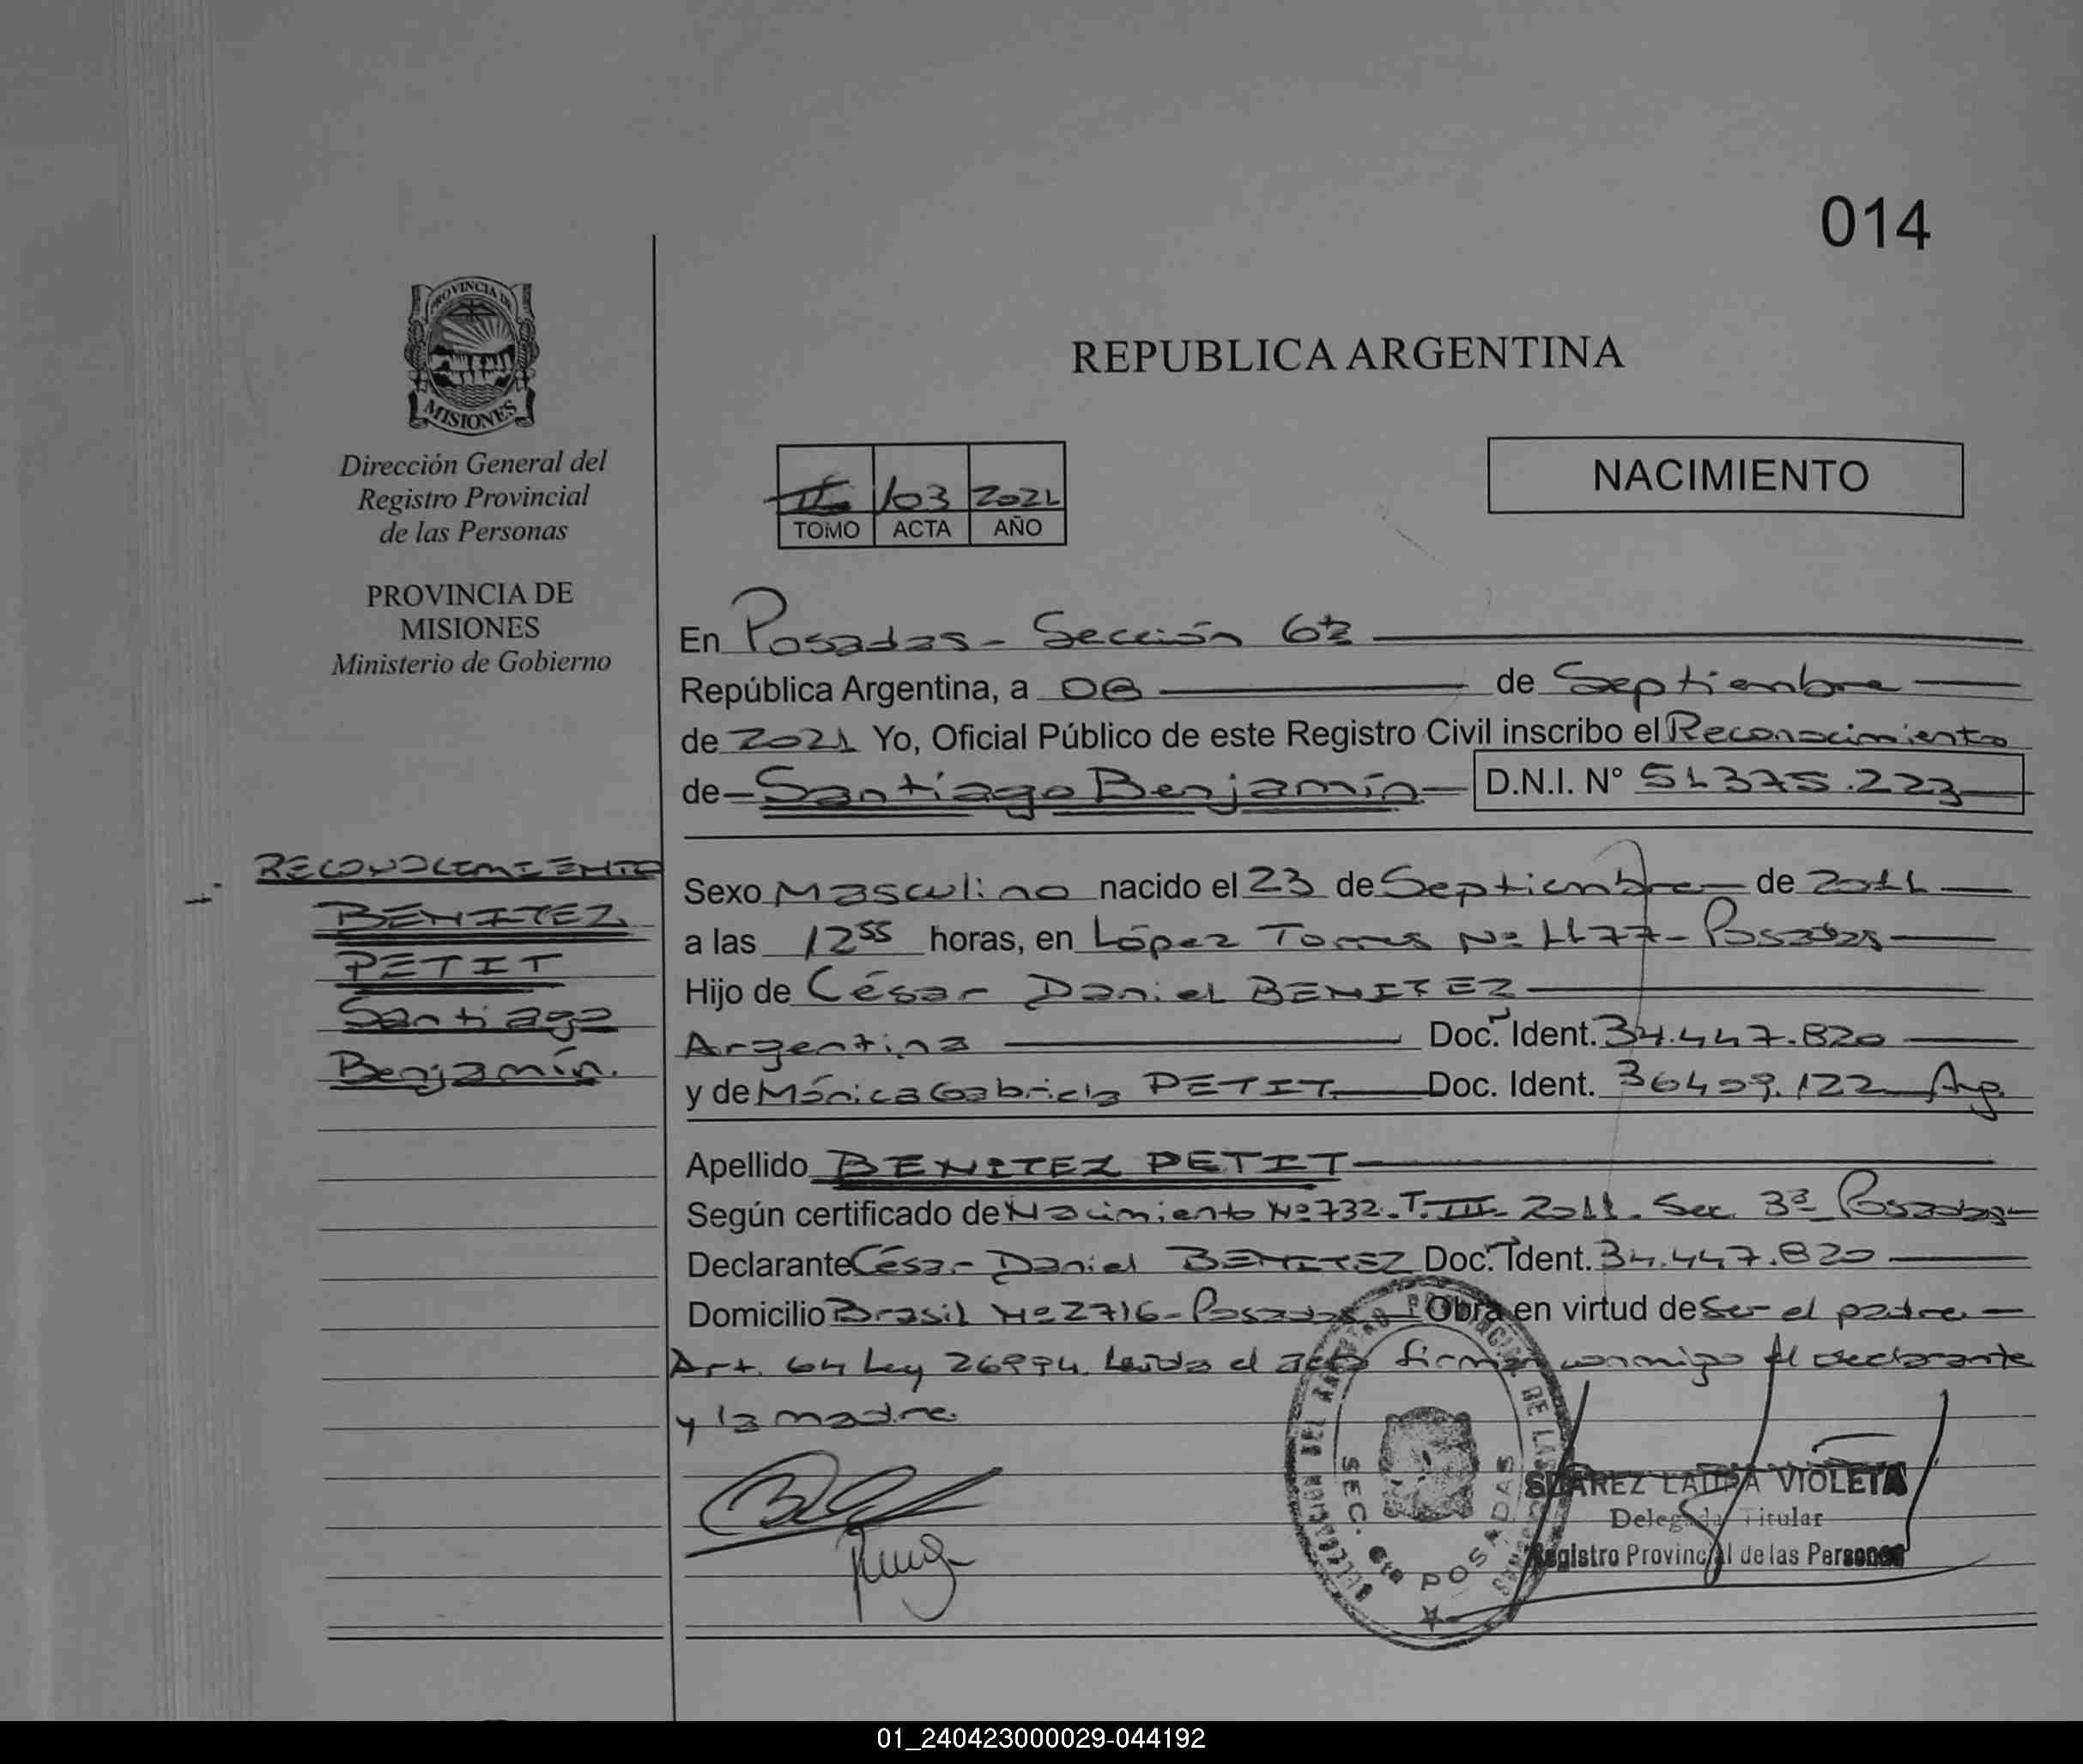 014
PROVINCIA DE
MISIONES
Dirección General del
Registro Provincial
de las Personas
PROVINCIA DE
MISIONES
Ministerio de Gobierno
REPUBLICA ARGENTINA
NACIMIENTO
103 2021
TOMO ACTA AÑO
En Posadas - Sección 6ta
República Argentina, a 08 de Septiembre
de 2021 Yo, Oficial Público de este Registro Civil inscribo el Reconocimiento
de Santiago Benjamín D.N.I. N° 51375.223
RECONOCIMIENTO
BENITEZ
PETIT
Santiago
Benjamín.
Sexo Masculino nacido el 23 de Septiembre de 2011
a las 12 55 horas, en López Torres Nº 1177 - Posadas
Hijo de César Daniel BENITEZ
Argentina Doc. Ident. 34.447.820
y de Mónica Gabriela PETIT Doc. Ident. 36409.122 Arg.
Apellido BENITEZ PETIT
Según certificado de Nacimiento Nº 732. T. III 2011. Sec. 3ª Posadas
Declarante César Daniel BENITEZ Doc. Ident. 34.447.820
Domicilio Brasil Nº 2716 - Posadas Obra en virtud de Ser el padre
Art. 64 Ley 26994. Leída el acta firman conmigo el declarante
y la madre.
SEC. 6ta POSADAS
SUAREZ LAURA VIOLETA
Delegada Titular
Registro Provincial de las Personas
01_240423000029-044192